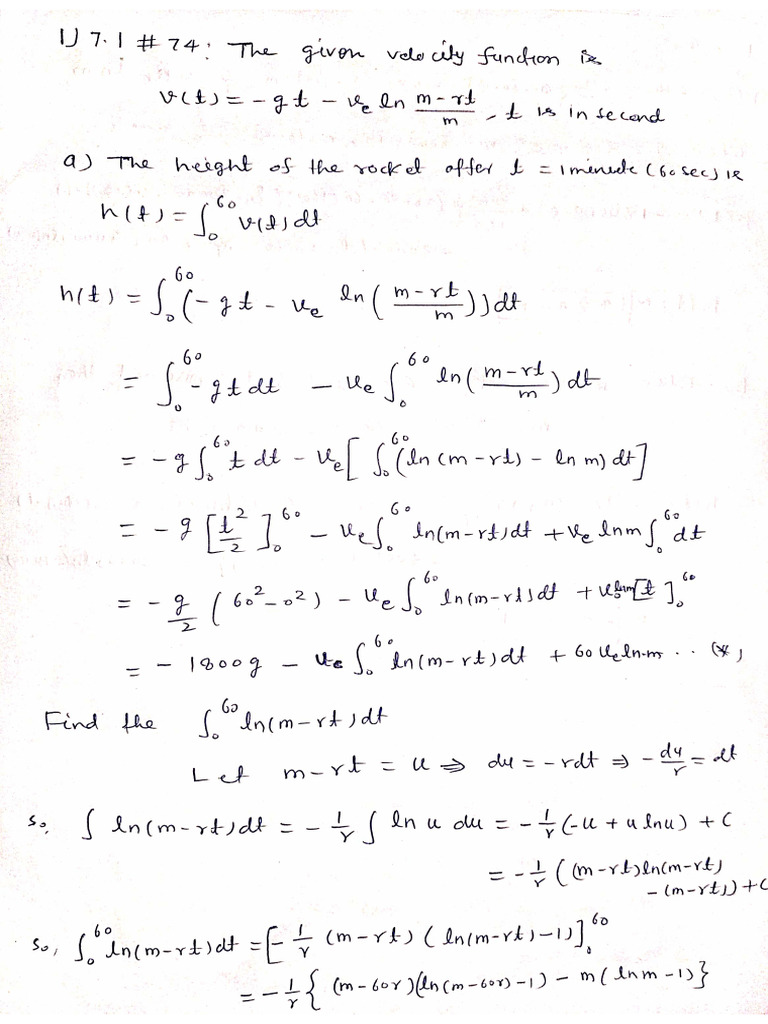 1) 7.1 # 74: The given velocity function is
v(t) = -gt - v_e ln (m-rt)/m, t is in second
a) The height of the rocket after t = 1 minute (60 sec) is
h(t) = ∫_0^60 v(t)dt
h(t) = ∫_0^60 (-gt - v_e ln((m-rt)/m))dt
= ∫_0^60 -gt dt - v_e ∫_0^60 ln((m-rt)/m)dt
= -g∫_0^60 t dt - v_e[∫_0^60 (ln(m-rt) - ln m)dt]
= -g[t^2/2]_0^60 - v_e∫_0^60 ln(m-rt)dt + v_e lnm∫_0^60 dt
= -g/2 (60^2-0^2) - v_e∫_0^60 ln(m-rt)dt + v_e lnm[t]_0^60
= -1800g - v_e∫_0^60 ln(m-rt)dt + 60 v_e ln m .. (*)
Find the ∫_0^60 ln(m-rt)dt
Let m-rt = u ⇒ du = -rdt ⇒ -du/r = dt
so, ∫ ln(m-rt)dt = -1/r ∫ ln u du = -1/r (-u + u lnu) + C
= -1/r ((m-rt)ln(m-rt)
-(m-rt)) + C
so, ∫_0^60 ln(m-rt)dt = [-1/r (m-rt)(ln(m-rt)-1)]_0^60
= -1/r {(m-60r)(ln(m-60r)-1) - m(ln m-1)}